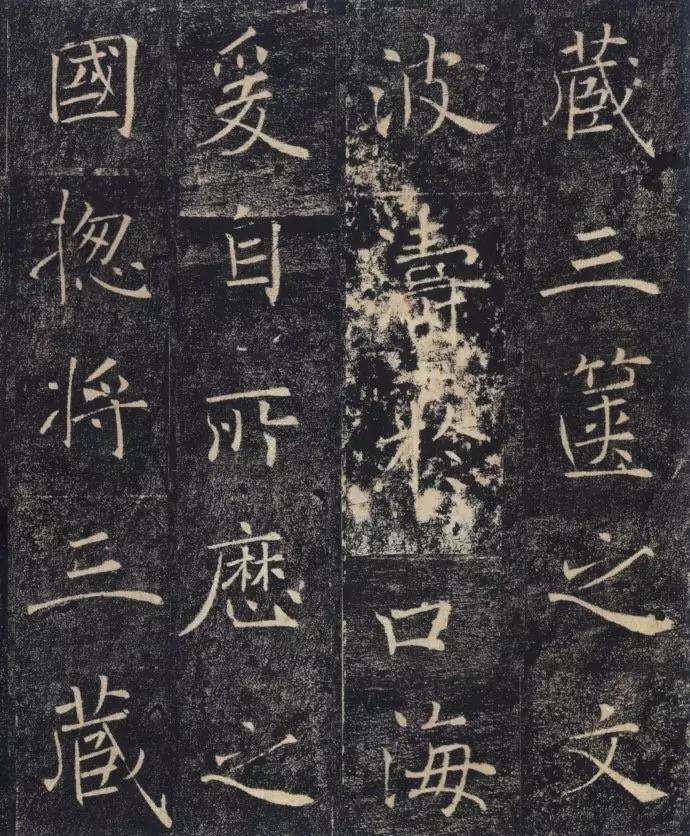 藏三箧之文
波濤於口海
爰自所歷之
國揔将三藏